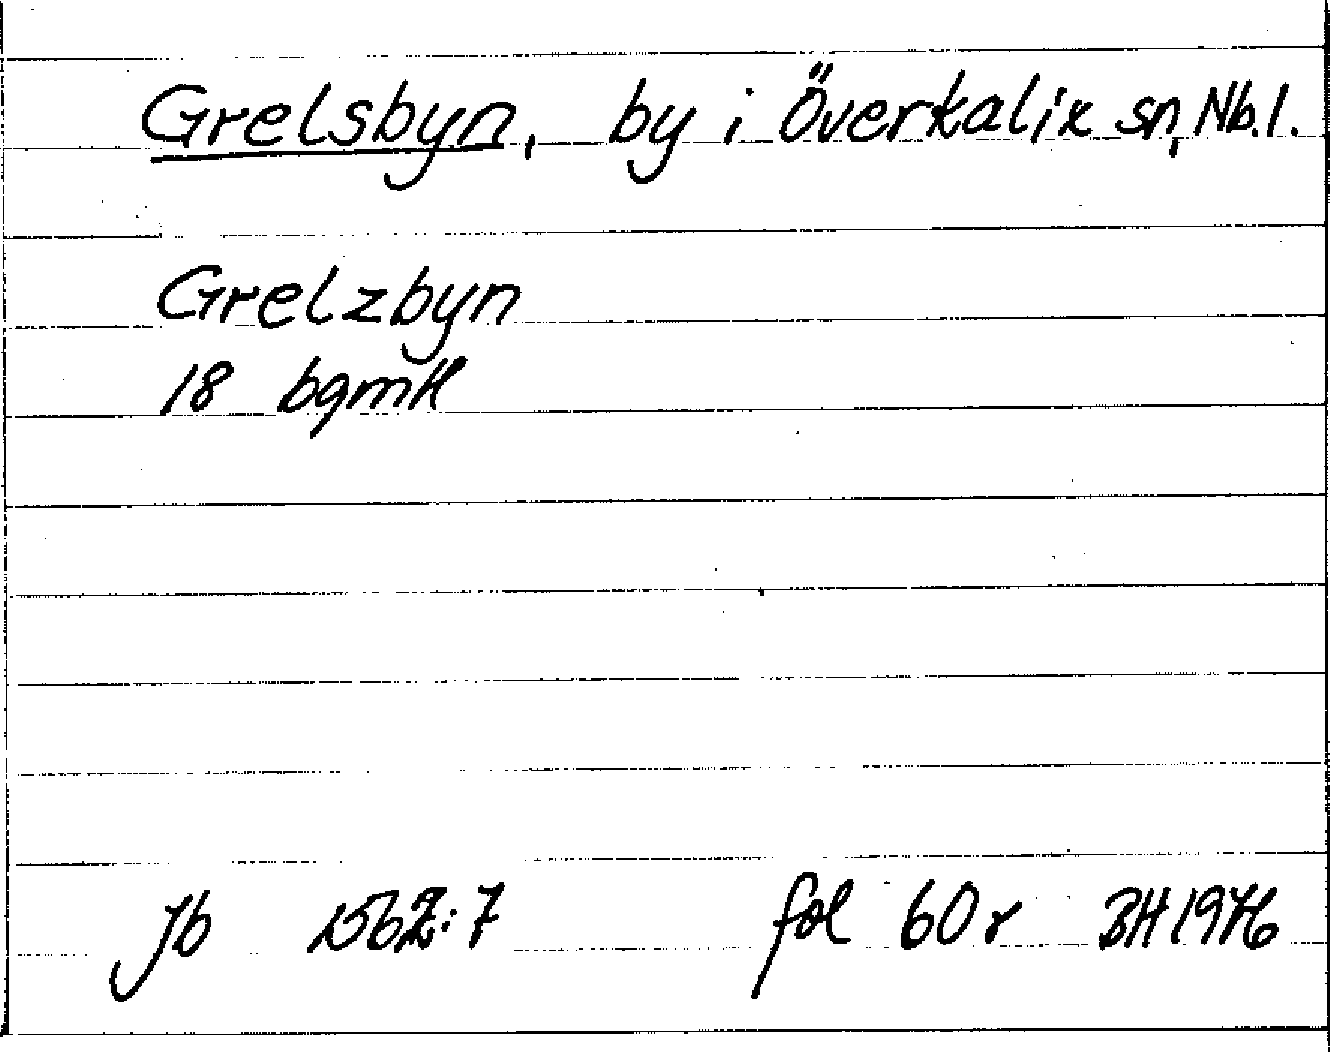 Grelsbyn, by i Överkalix sn, Nb.l.
Grelzbyn
18 bgmtl
Jb 1562:7 fol 60 r BH 1976